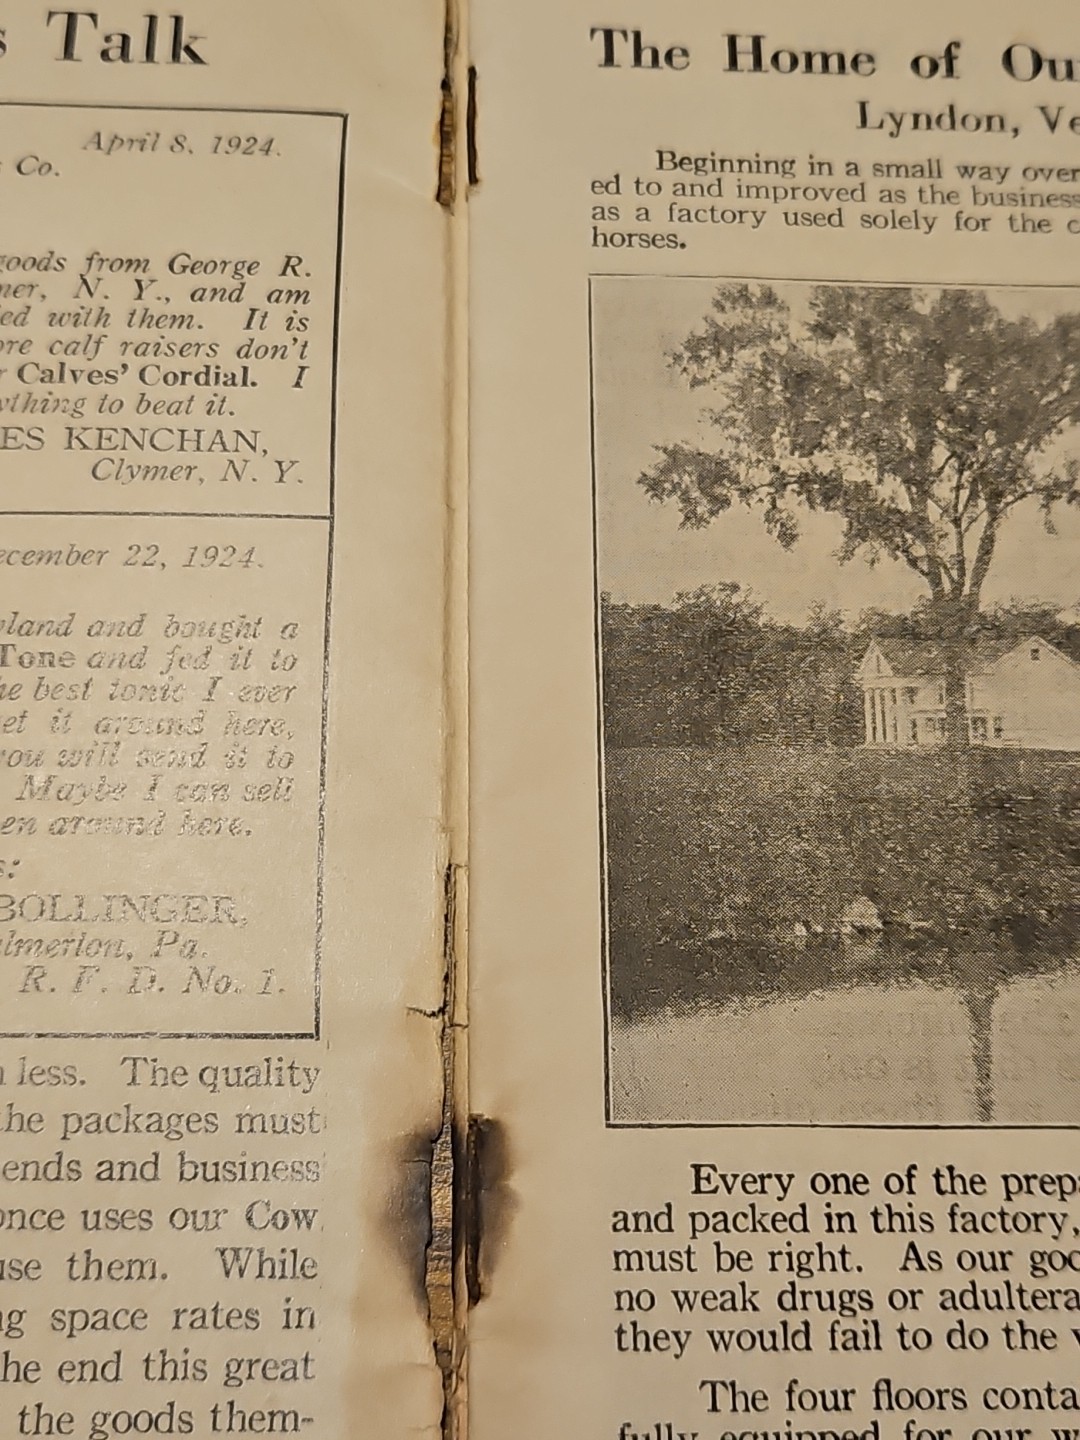 s Talk
April 8, 1924.
Co.
goods from George R.
N. Y., and am
with them. It is
calf raisers don't
Calves' Cordial. I
to beat it.
KENCHAN,
Clymer, N. Y.
December 22, 1924.
and bought a
Tone and fed it to
best tonic I ever
it around here,
you will send it to
Maybe I can sell
around here.
BOLLINGER,
Pa.
R. F. D. No. 1.
less. The quality
the packages must
and business
once uses our Cow
use them. While
space rates in
the end this great
the goods them-
The Home of Ou
Lyndon, Ve
Beginning in a small way over
ed to and improved as the business
as a factory used solely for the c
horses.
Every one of the prepa
and packed in this factory,
must be right. As our goo
no weak drugs or adultera
they would fail to do the
The four floors conta
fully equipped for our w